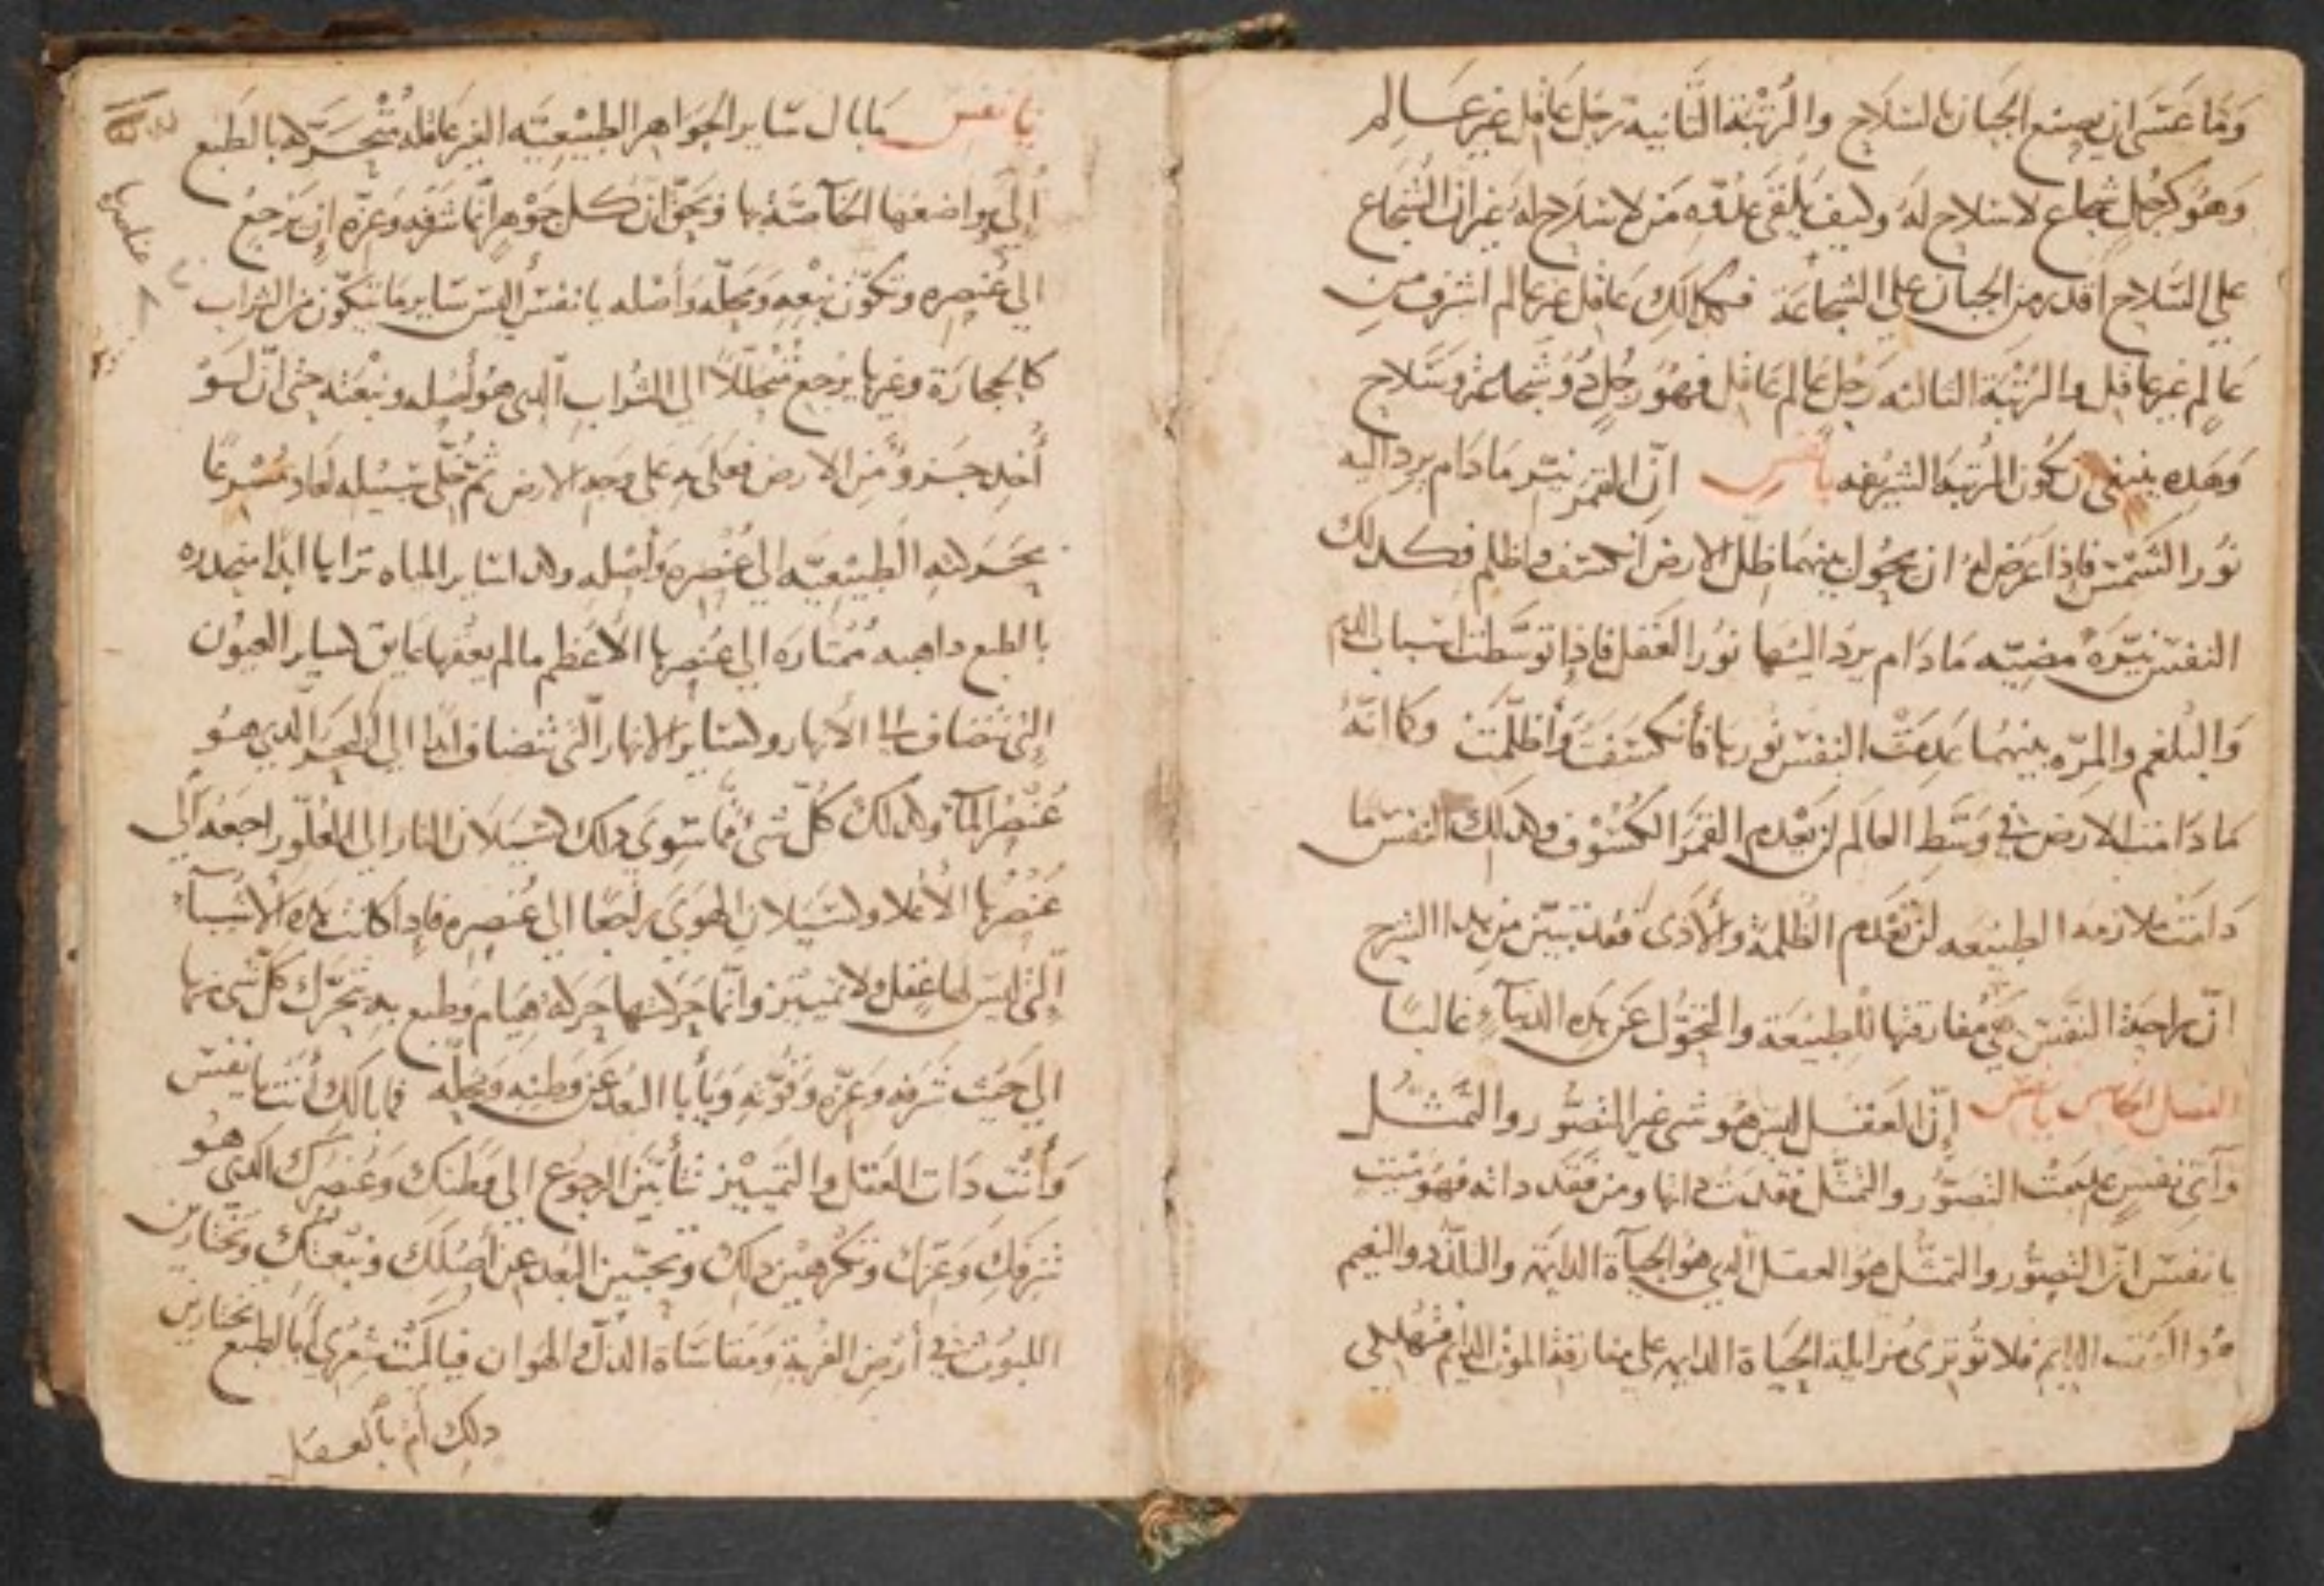 وَمَا عَسَى ان يصنع الجبان بالسلاح والرُتْبَة الثَّانية رجل عَاقِل غير عَالم
وَهُو كرَجُلٍ شجاع لاسلاح لهَ وكيف يَلقَى عَدُوّه مَن لا سلاح له غير ان الشجاع
علي السّلاح اقدر من الجبان على الشجاعَة فكذلك عَاقِل غير عالم اشرف من
عَالِم غير عاقِل والرُتْبَة الثالثه رَجل عَالم عَاقل فهُوَ رجُل ذُو شجاعة وسَلاح
وَهَذه ينبغي ان تكون المرتبة الشريفه يا نفس انّ القمَر نيّر مَا دَام يرد اليه
نُور الشَّمْس فاذا عَرَض لهُ ان يحُول بينهمَا ظل الارض انكسف واظلم فكذلك
النفس نَيّرَة مضيّه مَا دَام يرد اليهَا نوُر العَقل فاذا توسَّطت اسباب الدم
وَالبلغم والمرّه بينهُما عَدِمَتْ النفس نورها فانكسَفَتْ وَأظلَمَتْ وكما انّهُ
مَا دَامت الارض في وَسَطِ العَالَم لن يَعْدم القمَر الكسُوْف وكذلك النفس ما
دَامَتْ ملازمه الطبيْعَه لن تعْدم الظلمة والأذى فقد تبيّن من هذا الشرح
انّ راحة النفس هي مُفارقتها للطبيْعَة والتحوُّل عَن هَذه الدنيآء غالبًا
الفصل الخامس يا نفس إنّ العَقل ليس هُوَ شي غير التصَوُّر والتمَثّل
وَأي نفسٍ عَدِمَتْ التصَوُّر والتمثّل فقَدَتْ ذاتها ومن فقَد ذاته فهُو ميّت
يا نفس انّ التصَوُّر والتمَثُّل هوَ العقل الّذي هُو الحيَاة الدايمَة والتلذّذ والنعيم
هُوَ الموت الدايم فلا تُوثري مُزايلة الحيَاة الدايمه على مفارقة الموت الدايم فتهلكي
يا نفس مَا بال سَاير الجَوَاهر الطبيْعِيَّه الغير عَاقله مُتَحَرّكه بالطبع
إلَى موَاضعهَا الخآصّة بها وَيحقّ انّ كل جَوْهرٍ انّما شرَفه وَعزّه ان يَرْجع
الي عُنصره وتكوّن نبْعهِ وَمحلّه وَأصْله يا نفس أليس سَاير مَا يتكَوّن من التراب
كالحجارَة وغيرها يرجع مُتحلّلاً الي التُراب الّذي هُو أصْله ونبْعَته حَتّى انّ لوُ
أُخِذ جزوٌ مِن الارض فعَلَى بهِ على وَجه الارض ثمّ خُلّي سَبيله لعَاد مُسْرعًا
بحَركته الطبيْعيّه الي عُنْصره وَأصْله وكذا سَاير المياه ترايا ابدًا منحدره
بالطبع ذاهبه مُمتَاره الي عُنصرها الأعظم مالم يعُقها عَايق كسَاير العيُون
الّتي تنضَاف الي الأنهار وكسَاير الانهار الّتي تنضَاف ابدًا الي البحر الّذي هُو
عُنْصُر المآء وكذلك كُلّ شئٍ ممّا سِوَى ذلك كسَيَلان النار الى العُلوّ راجعَة الَى
عُنْصُرها الأعْلا وكسَيَلان الهَوى رَاجعًا الى عُنصره فاذا كانت هذه الأشيَآء
الّتي ليس لها عَقل ولا تمييز وانّما حَركتها حَركة هيَام وَطبع به تتحَرّك كلّ شي منها
الي حَيث شَرَفه وَعزّه وَقُوّته وَيأبا البُعد عَن وَطنه وَمحلّه فما بالك أنت يا نفس
وَأنْت ذَات العَقل والتمييْز تأبَيْن الرجُوع الى وَطنك وَعُنصرك الّذي هُو
شرَفك وَعزّك وتكرهين ذلك وَتحبّين البُعد عن أصْلك ونَبْعتك وَتختارين
اللبوث في أرْض الغربة وَمقاسَاة الذلّ والهوَان فيا لَيْت شعْري أبالطبع تختارين
ذلك أم بالعقل